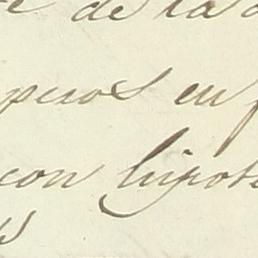 de la
pesos en
con hipote